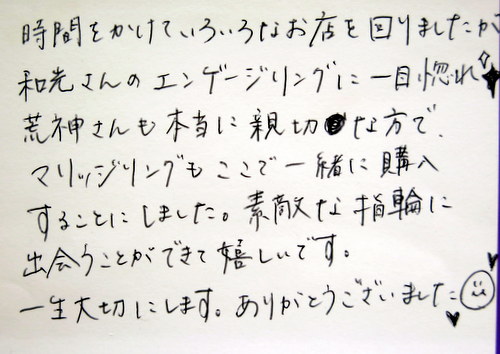 時間をかけていろいろなお店を回りましたが
和光さんのエンゲージリングに一目惚れ
荒神さんも本当に親切な方で、
マリッジリングもここで一緒に購入
することにしました。素敵な指輪に
出会うことができて嬉しいです。
一生大切にします。ありがとうございました